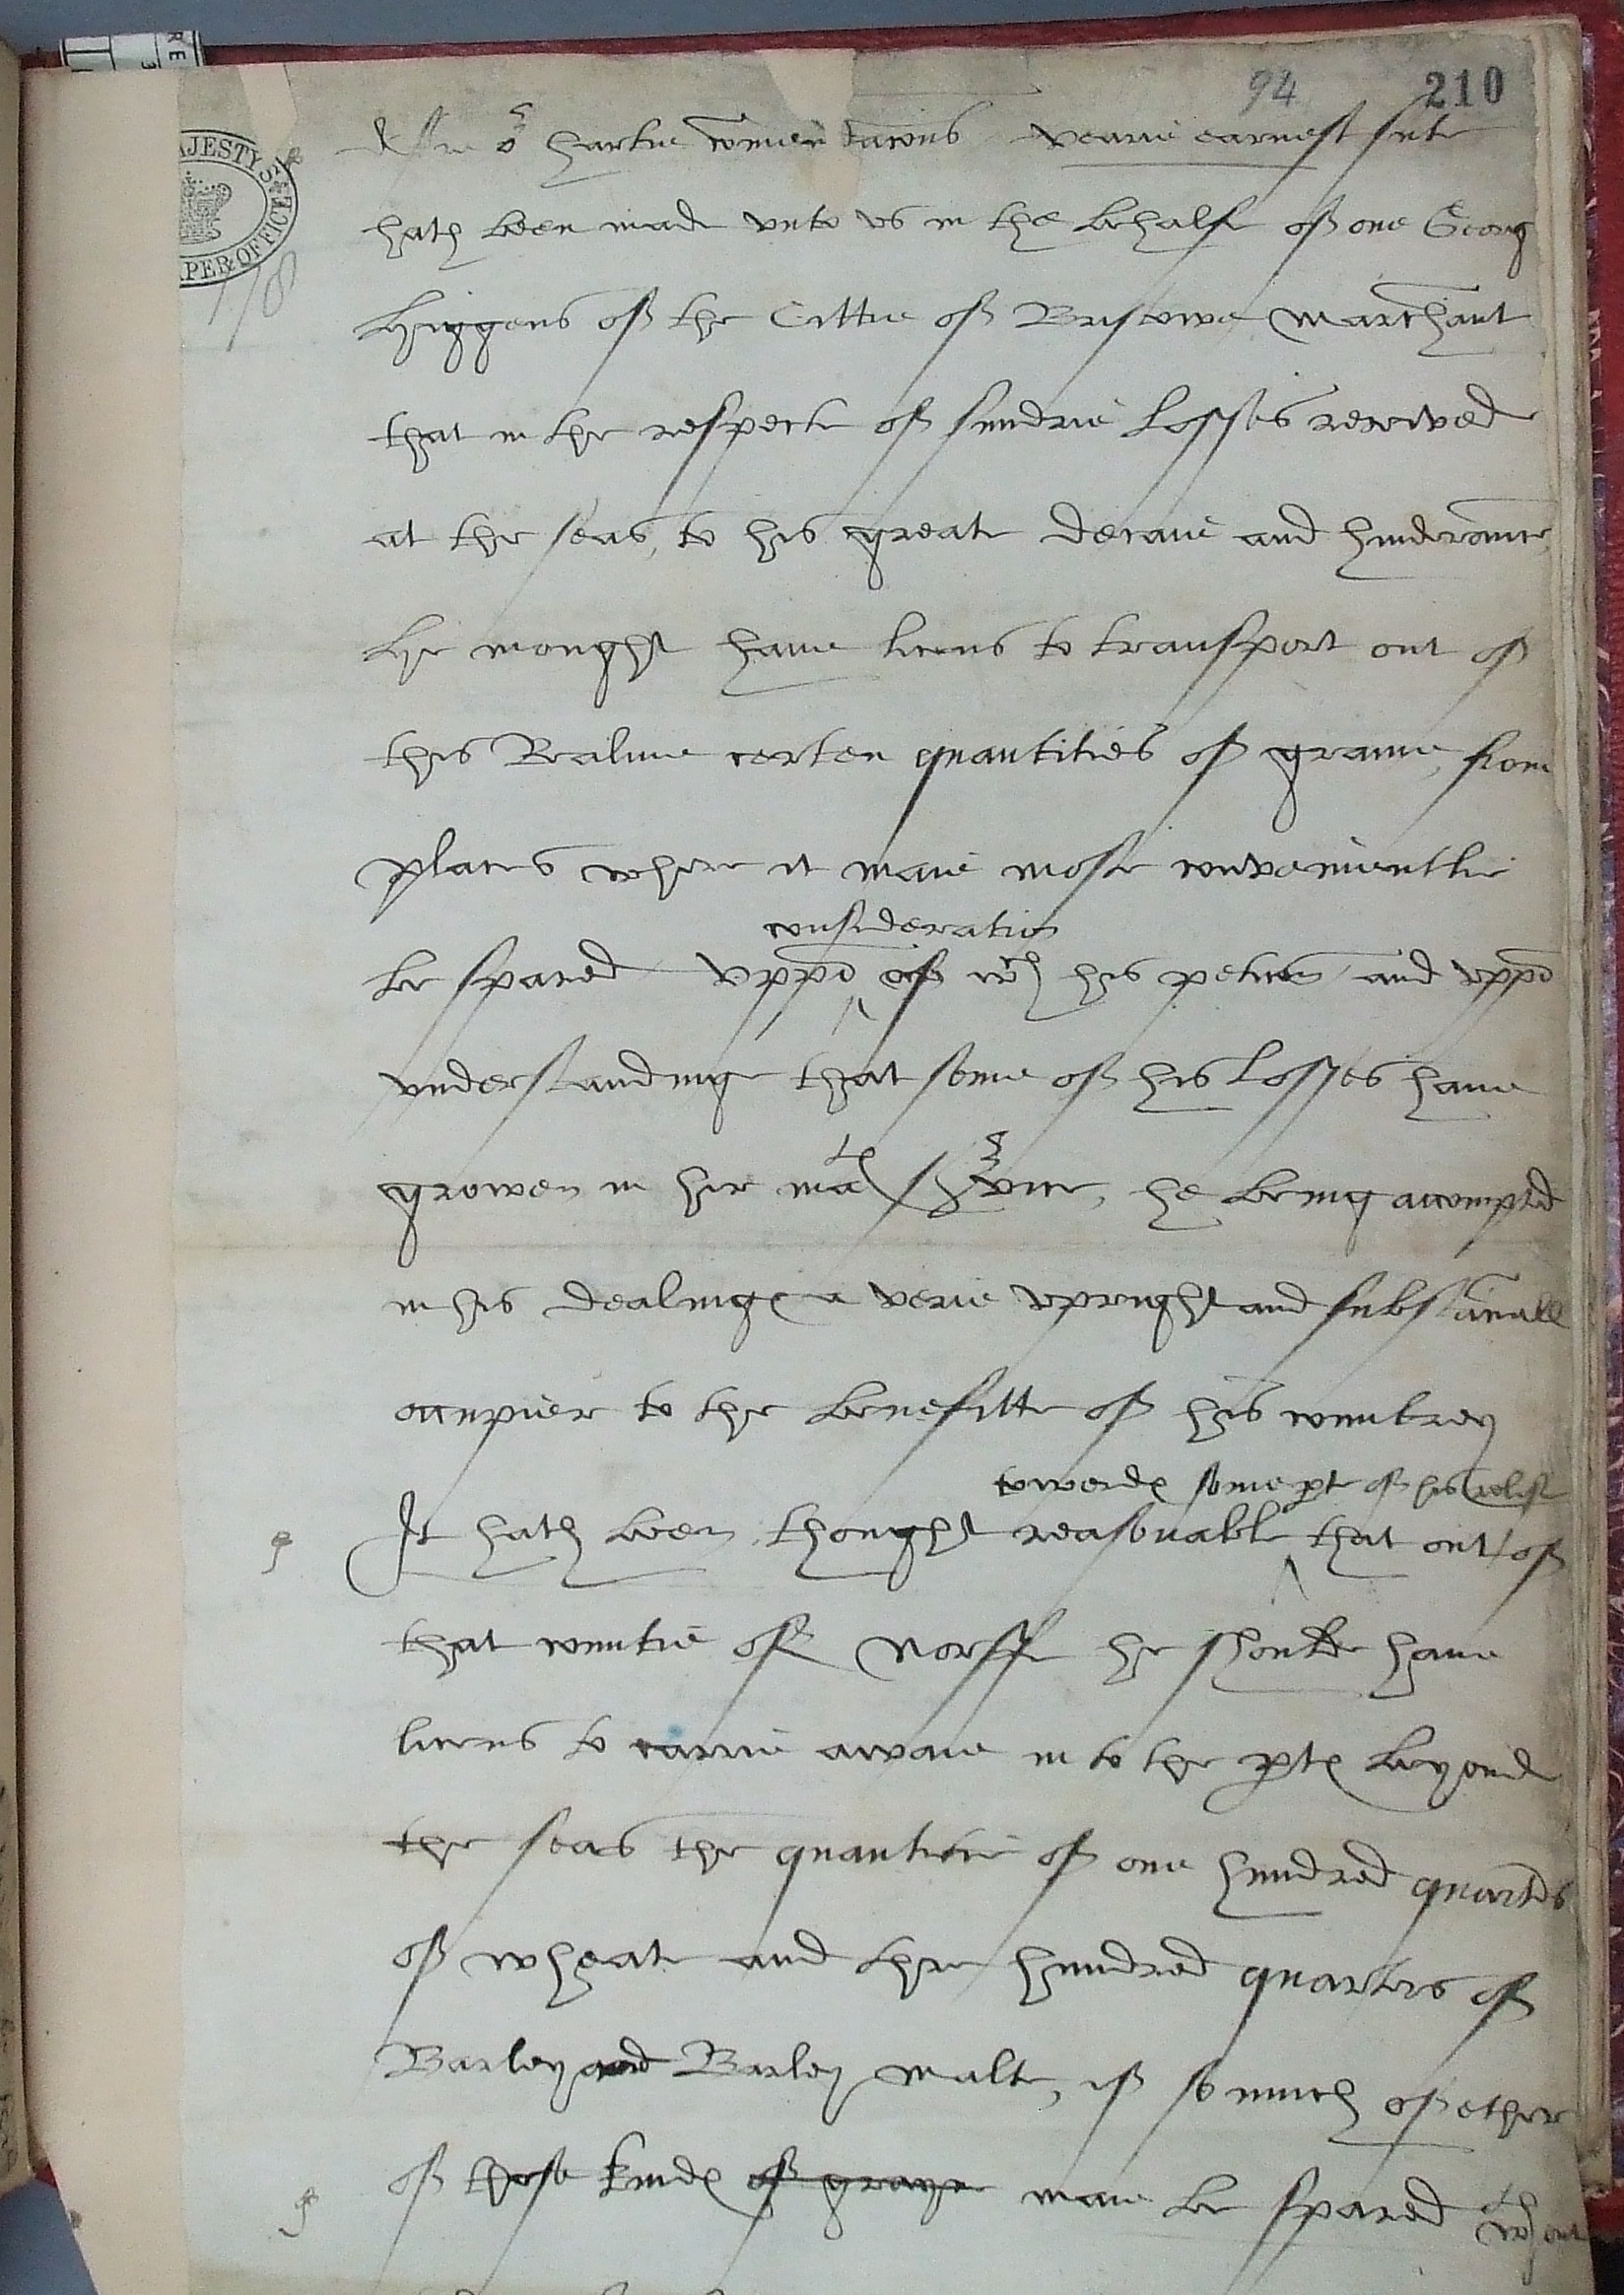 94 210
AJESTY'S
APER OFFICE
178
After or hartie commendacions vearie earnest sute
hath been made vnto vs in the behalfe of one Georg
Higgens of the Cittie of Bristowe marchant
that in the respecte of sundrie losses received
at the seas, to his greate decaie and hinderance,
he mought haue licens to transport out of
this Realme certen quantities of graine, from
places where it maie moste convenientlie
consideration
be spared vppō of wch his peticion and vppō
vnderstandinge that some of his losses haue
growen in her mats service, he being accompted
in his dealinges a verie vpright and substanciall
occupier to the benefitte of his countrey
towerdes some pte of his relief
It hath been thought reasonable that out of
that countie of Norff he shoulde haue
licens to carrie awaie in to the ptes beyond
the seas the quantitie of one hundred quarters
of wheate and thre hundred quarters of
Barley and Barley malte, if so much of ether
of those kindes of grayne maie be spared wthout